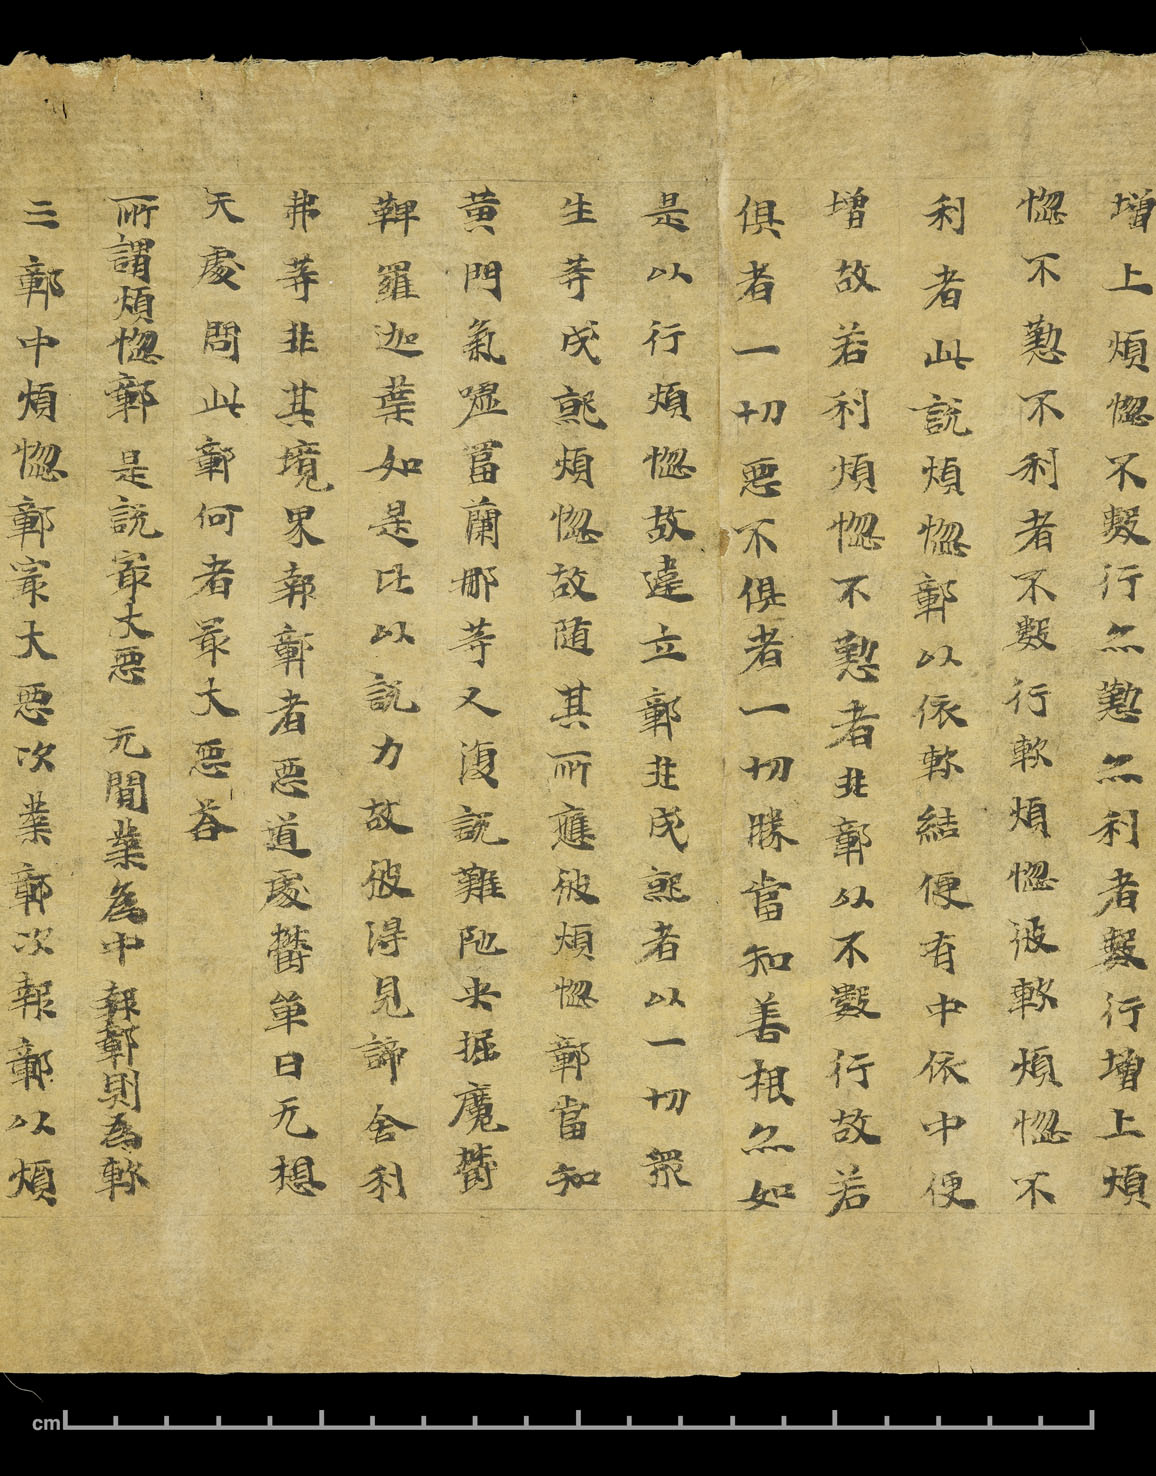 增上煩惚不數行亦懃亦利者數行增上煩
惚不懃不利者不數行軟煩惚彼軟煩惚不
利者此說煩惚鄣以依軟結便有中依中便
增故若利煩惚不懃者非鄣以不數行故若
俱者一切惡不俱者一切勝當知善根亦如
是以行煩惚故違立鄣非成就者以一切眾
生等成就煩惚故随其所應彼煩惚鄣當知
黃門氣噓富蘭那等又復說難陁央掘魔欝
鞞羅迦葉如是比以說力故彼得見諦舍利
弗等非其境界報鄣者惡道處欝單曰无想
天處問此鄣何者最大惡荅
所謂煩惚鄣是說最大惡无間業為中報鄣則為軟
三鄣中煩惚鄣最大惡次業鄣次報鄣以煩